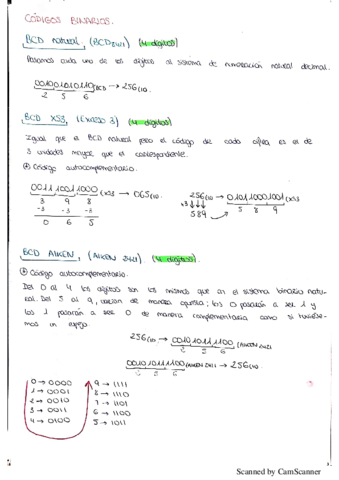 CÓDIGOS BINARIOS.
BCD natural, (BCD8421) (4 dígitos)
Pasamos cada uno de los dígitos al sistema de numeración natural decimal.
001001010110(BCD → 256(10
2 5 6
BCD XS3, (Exceso 3) (4 dígitos)
Igual que el BCD natural pero el código de cada cifra es el de
3 unidades mayor que el correspondiente.
Código autocomplementario.
001110011000(XS3 → 065(10
3 9 8
-3 -3 -3
0 6 5
256(10 → 010110001001(XS3
+3 ↓↓↓ 5 8 9
589
BCD AIKEN, (AIKEN 2421) (4 dígitos)
Código autocomplementario.
Del 0 al 4 los dígitos son los mismos que en el sistema binario natu-
ral. Del 5 al 9, varían de manera opuesta; los 0 pasarán a ser 1 y
los 1 pasarán a ser 0 de manera complementaria como si tuviése-
mos un espejo.
256(10 → 001010111100(AIKEN
2 5 6
001010111100(AIKEN 2421 → 256(10
2 5 6
0 → 0000 9 → 1111
1 → 0001 8 → 1110
2 → 0010 7 → 1101
3 → 0011 6 → 1100
4 → 0100 5 → 1011
Scanned by CamScanner